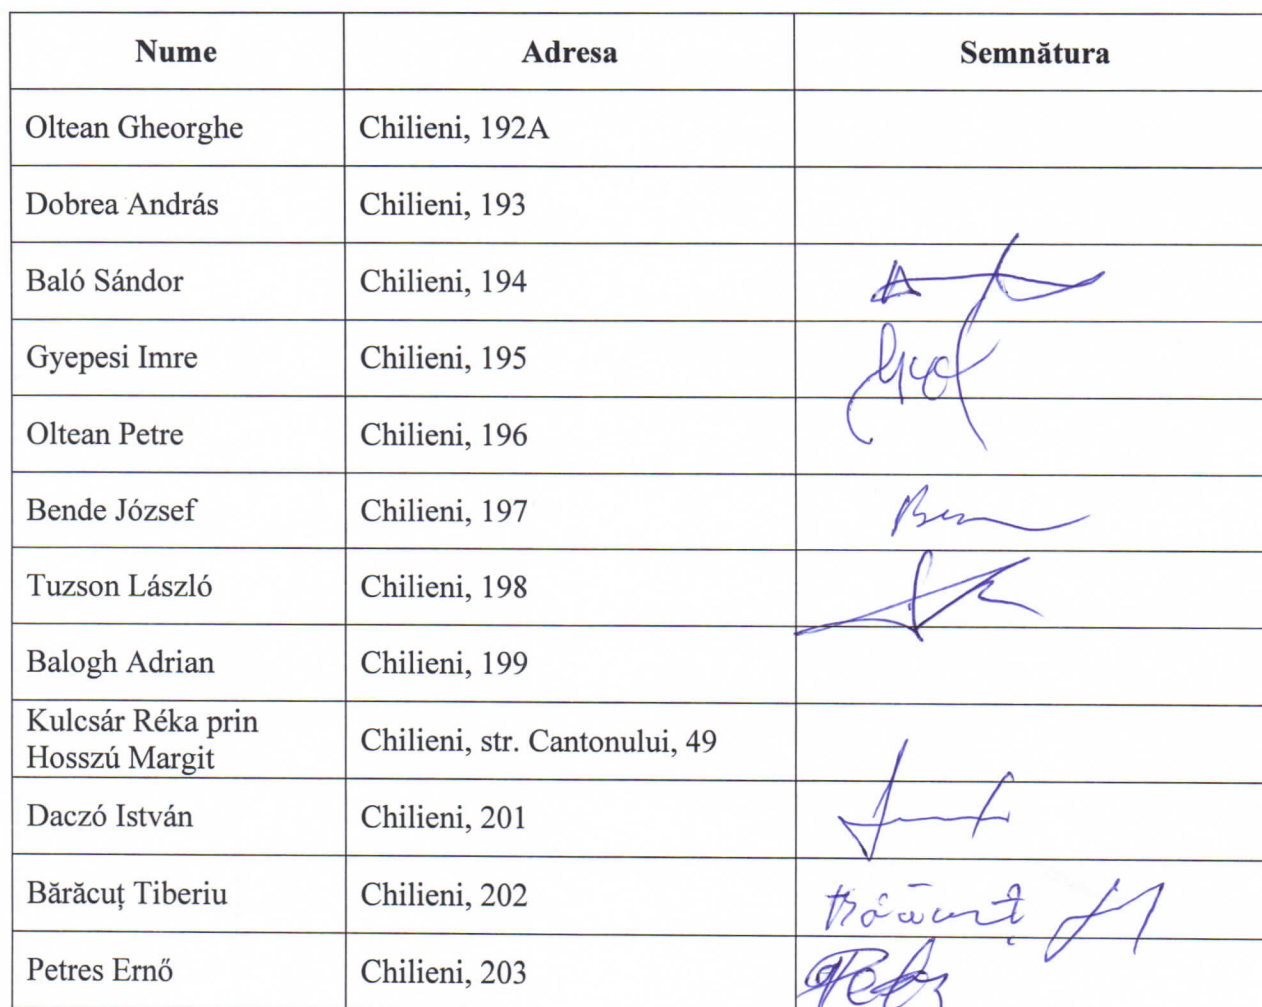 Nume Adresa Semnătura
Oltean Gheorghe Chilieni, 192A
Dobrea András Chilieni, 193
Baló Sándor Chilieni, 194
Gyepesi Imre Chilieni, 195
Oltean Petre Chilieni, 196
Bende József Chilieni, 197
Tuzson László Chilieni, 198
Balogh Adrian Chilieni, 199
Kulcsár Réka prin
Hosszú Margit Chilieni, str. Cantonului, 49
Daczó István Chilieni, 201
Bărăcuț Tiberiu Chilieni, 202
Petres Ernő Chilieni, 203